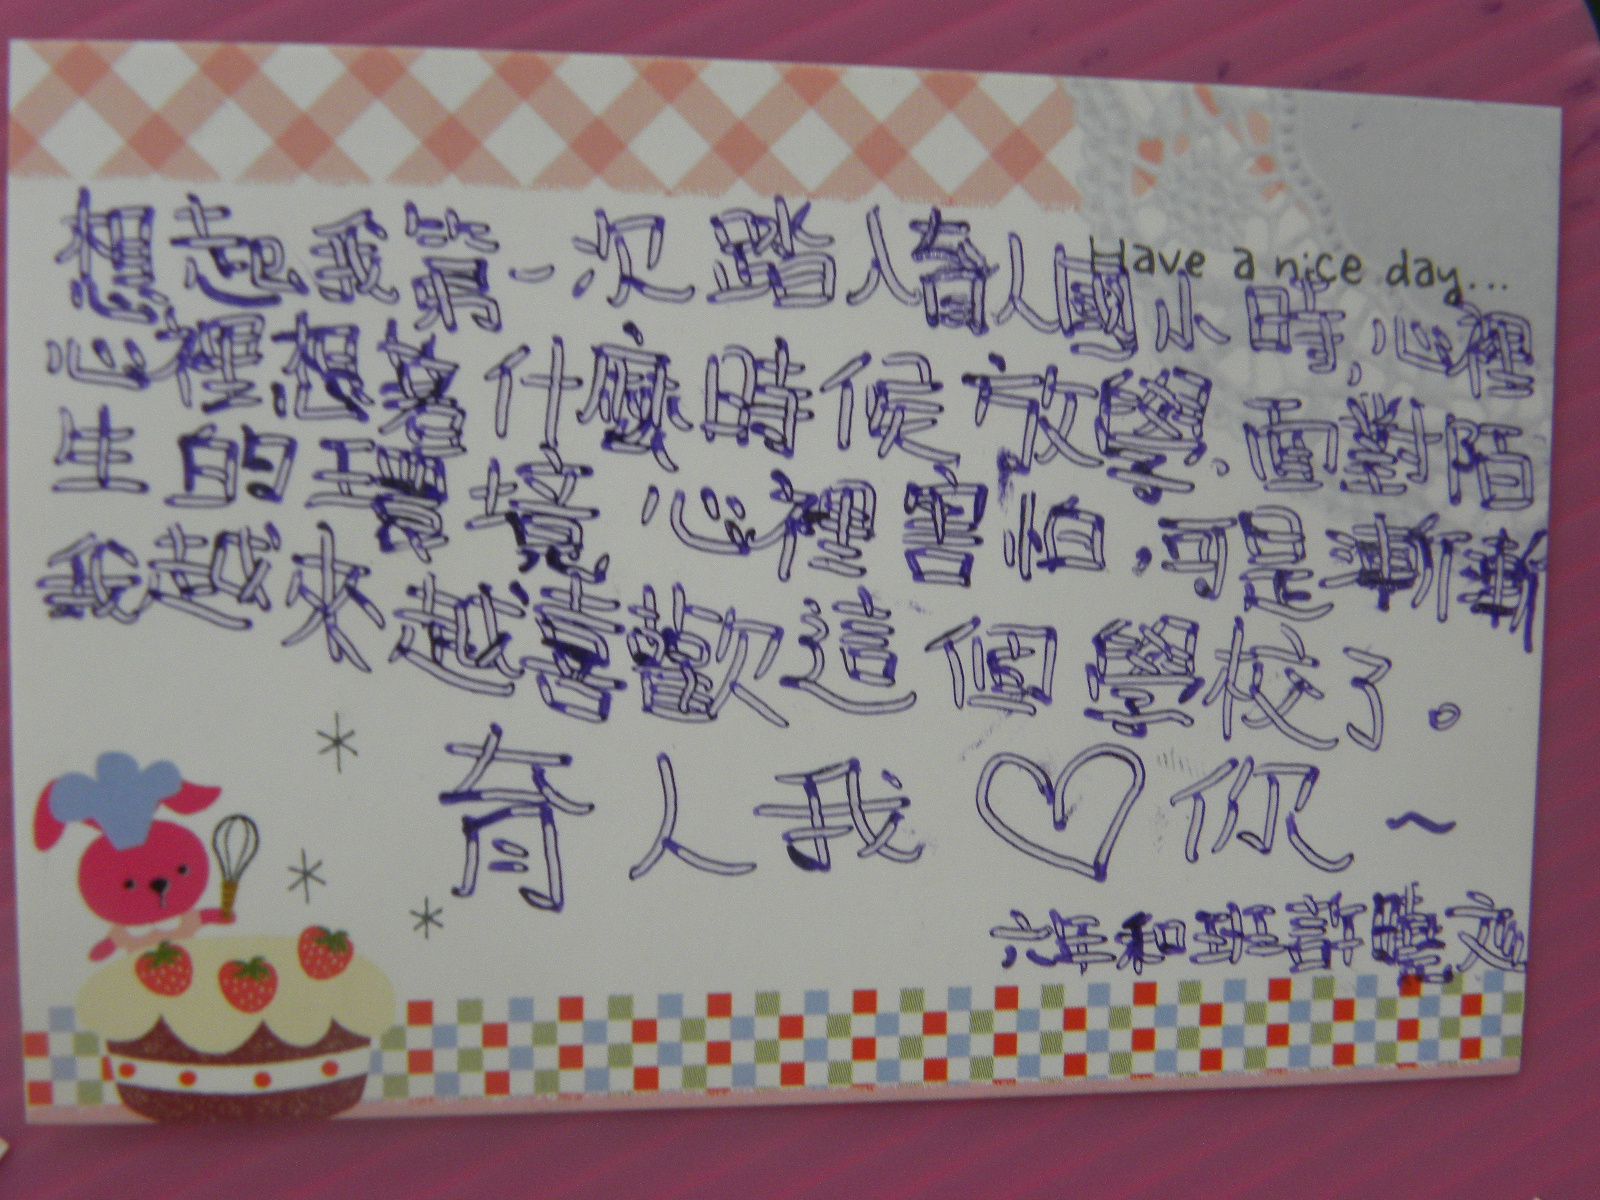 Have a nice day...
想起我第一次踏人育人國小時,心裡
心裡想著什麼時候放學,面對陌
生的環境心裡害怕,可是漸漸
我越來越喜歡這個學校了。
育人我♡你~
六年和班許